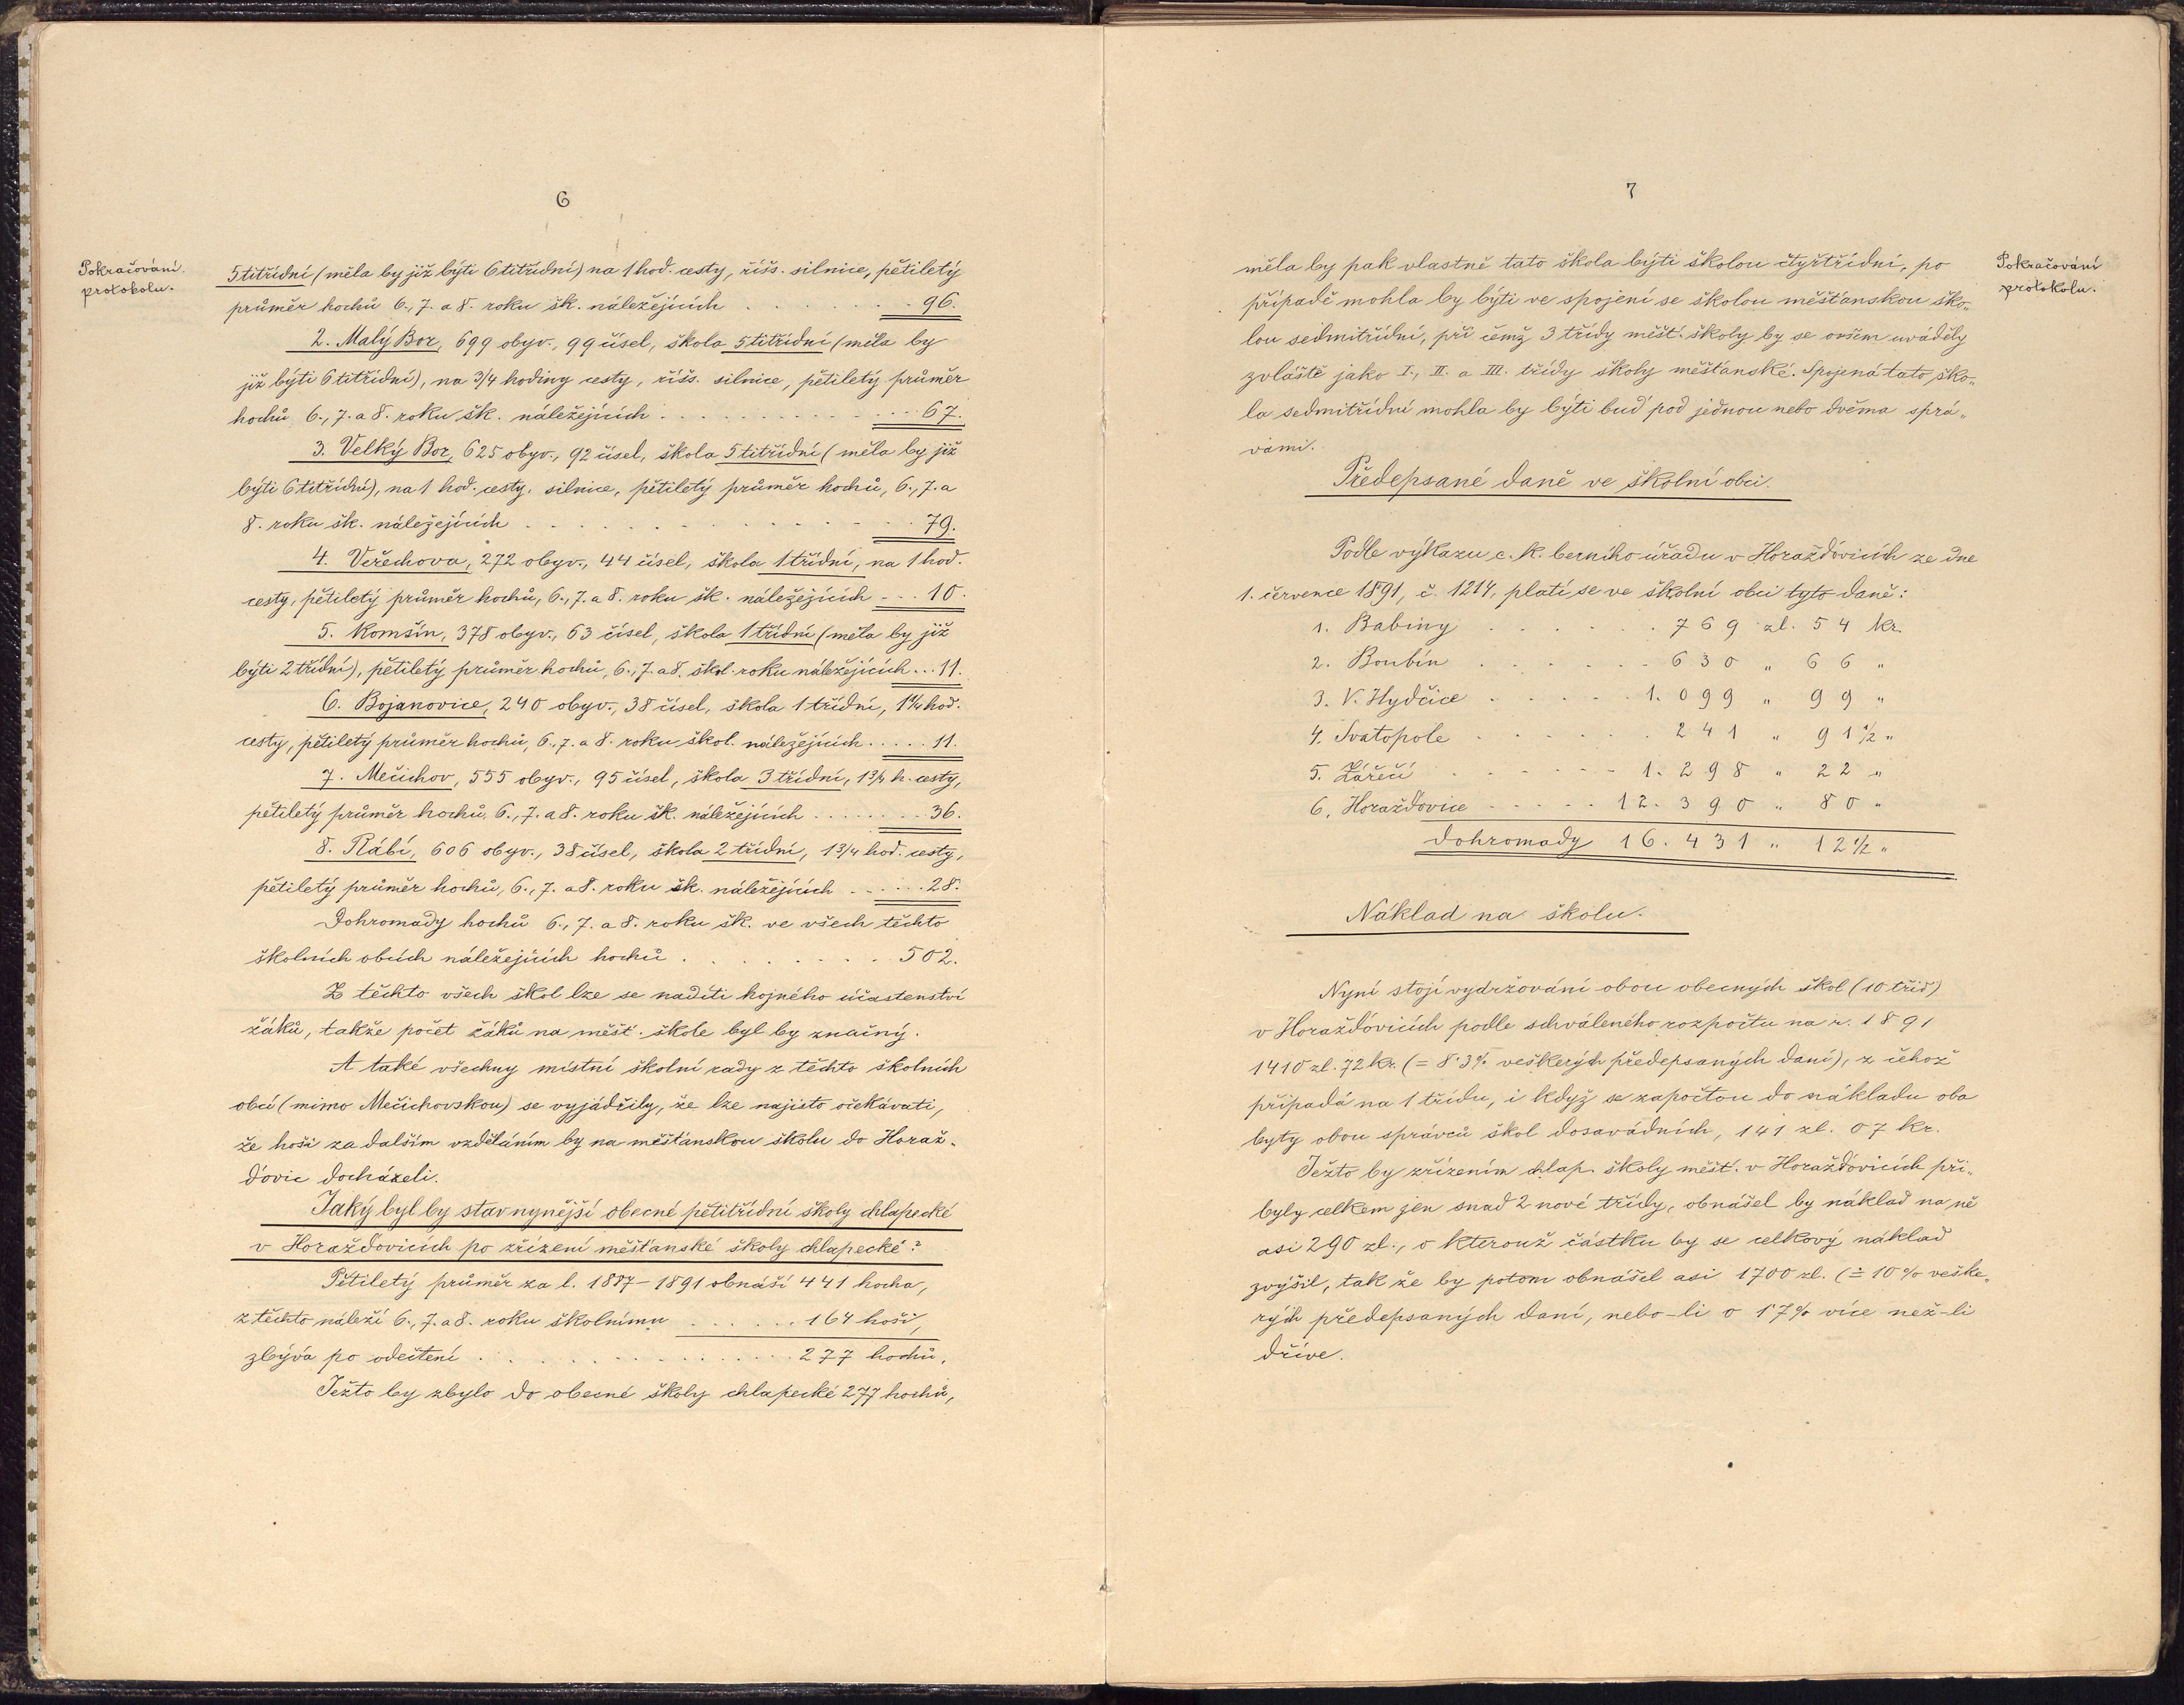 6
Pokračování
protokolu.
5titřídní (měla by již býti 6titřídní) na 1 hod. cesty, říšs. silnice, pětiletý
průměr hochů 6., 7. a 8. roku šk. náležejících . . . . . . . 96.
2. Malý Bor, 699 obyv., 99 čísel, škola 5titřídní (měla by
již býti 6titřídní), na 3/4 hodiny cesty, říšs. silnice, pětiletý průměr
hochů 6., 7. a 8. roku šk. náležejících . . . . . . . . . . . . 67.
3. Velký Bor, 625 obyv., 92 čísel, škola 5titřídní (měla by již
býti 6titřídní), na 1 hod. cesty, silnice, pětiletý průměr hochů, 6., 7. a
8. roku šk. náležejících . . . . . . . . . . . . . . . . 79.
4. Veřechova, 272 obyv., 44 čísel, škola 1třídní, na 1 hod.
cesty, pětiletý průměr hochů, 6., 7. a 8. roku šk. náležejících . . . 10.
5. Komšín, 378 obyv., 63 čísel, škola 1třídní (měla by již
býti 2třídní), pětiletý průměr hochů, 6., 7. a 8. škol. roku náležejících . . . 11.
6. Bojanovice, 240 obyv., 38 čísel, škola 1třídní, 1 1/4 hod.
cesty, pětiletý průměr hochů, 6., 7. a 8. roku škol. náležejících . . . . . 11.
7. Mečichov, 555 obyv., 95 čísel, škola 3třídní, 1 3/4 h. cesty,
pětiletý průměr hochů, 6., 7. a 8. roku šk. náležejících . . . . . . . . 36.
8. Rábí, 606 obyv., 38 čísel, škola 2třídní, 1 3/4 hod. cesty,
pětiletý průměr hochů, 6., 7. a 8. roku šk. náležejících . . . . . . 28.
Dohromady hochů 6., 7. a 8. roku šk. ve všech těchto
školních obcích náležejících hochů . . . . . . . . . 502.
Z těchto všech škol lze se nadíti hojného účastenství
žáků, takže počet žáků na měšť. škole byl by značný.
A také všechny místní školní rady z těchto školních
obcí (mimo Mečichovskou) se vyjádřily, že lze najisto očekávati,
že hoši za dalším vzděláním by na měšťanskou školu do Horaž-
ďovic docházeli.
Jaký byl by stav nynější obecné pětitřídní školy chlapecké
v Horažďovicích po zřízení měšťanské školy chlapecké?
Pětiletý průměr za l. 1887–1891 obnáší 441 hocha,
z těchto náleží 6., 7. a 8. roku školnímu . . . . . . 164 hoši,
zbývá po odečtení . . . . . . . . . . . . . . . . 277 hochů.
Ježto by zbylo do obecné školy chlapecké 277 hochů,
7
Pokračování
protokolu.
měla by pak vlastně tato škola býti školou čtyřtřídní, po
případě mohla by býti ve spojení se školou měšťanskou ško-
lou sedmitřídní, při čemž 3 třídy měšť. školy by se ovšem uváděly
zvláště jako I., II. a III. třídy školy měšťanské. Spojená tato ško-
la sedmitřídní mohla by býti buď pod jednou nebo dvěma sprá-
vami.
Předepsané daně ve školní obci.
Podle výkazu c. k. berního úřadu v Horažďovicích ze dne
1. července 1891, č. 1214, platí se ve školní obci tyto daně:
1. Babiny . . . . . . . 769 zl. 54 kr.
2. Boubín . . . . . . . 630 „ 66 „
3. V. Hydčice . . . . . 1.099 „ 99 „
4. Svatopole . . . . . . 241 „ 91 1/2 „
5. Zářečí . . . . . . . 1.298 „ 22 „
6. Horažďovice . . . . . 12.390 „ 80 „
Dohromady 16.431 „ 12 1/2 „
Náklad na školu.
Nyní stojí vydržování obou obecných škol (10 tříd)
v Horažďovicích podle schváleného rozpočtu na r. 1891
1410 zl. 72 kr. (= 8·3% veškerých předepsaných daní), z čehož
připadá na 1 třídu, i když se započtou do nákladu oba
byty obou správců škol dosavádních, 141 zl. 07 kr.
Ježto by zřízením chlap. školy měšť. v Horažďovicích při-
byly celkem jen snad 2 nové třídy, obnášel by náklad na ně
asi 290 zl., o kterouž částku by se celkový náklad
zvýšil, tak že by potom obnášel asi 1700 zl. (≐ 10% veške-
rých předepsaných daní, nebo-li o 1·7% více než-li
dříve.